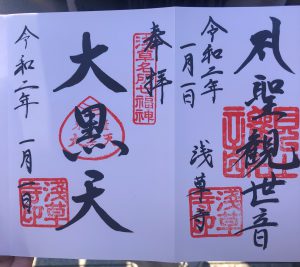 聖観世音
令和二年
一月一日
浅草寺
奉拝
浅草名所七福神
大黒天
令和二年 一月一日
浅草寺印
浅草寺印